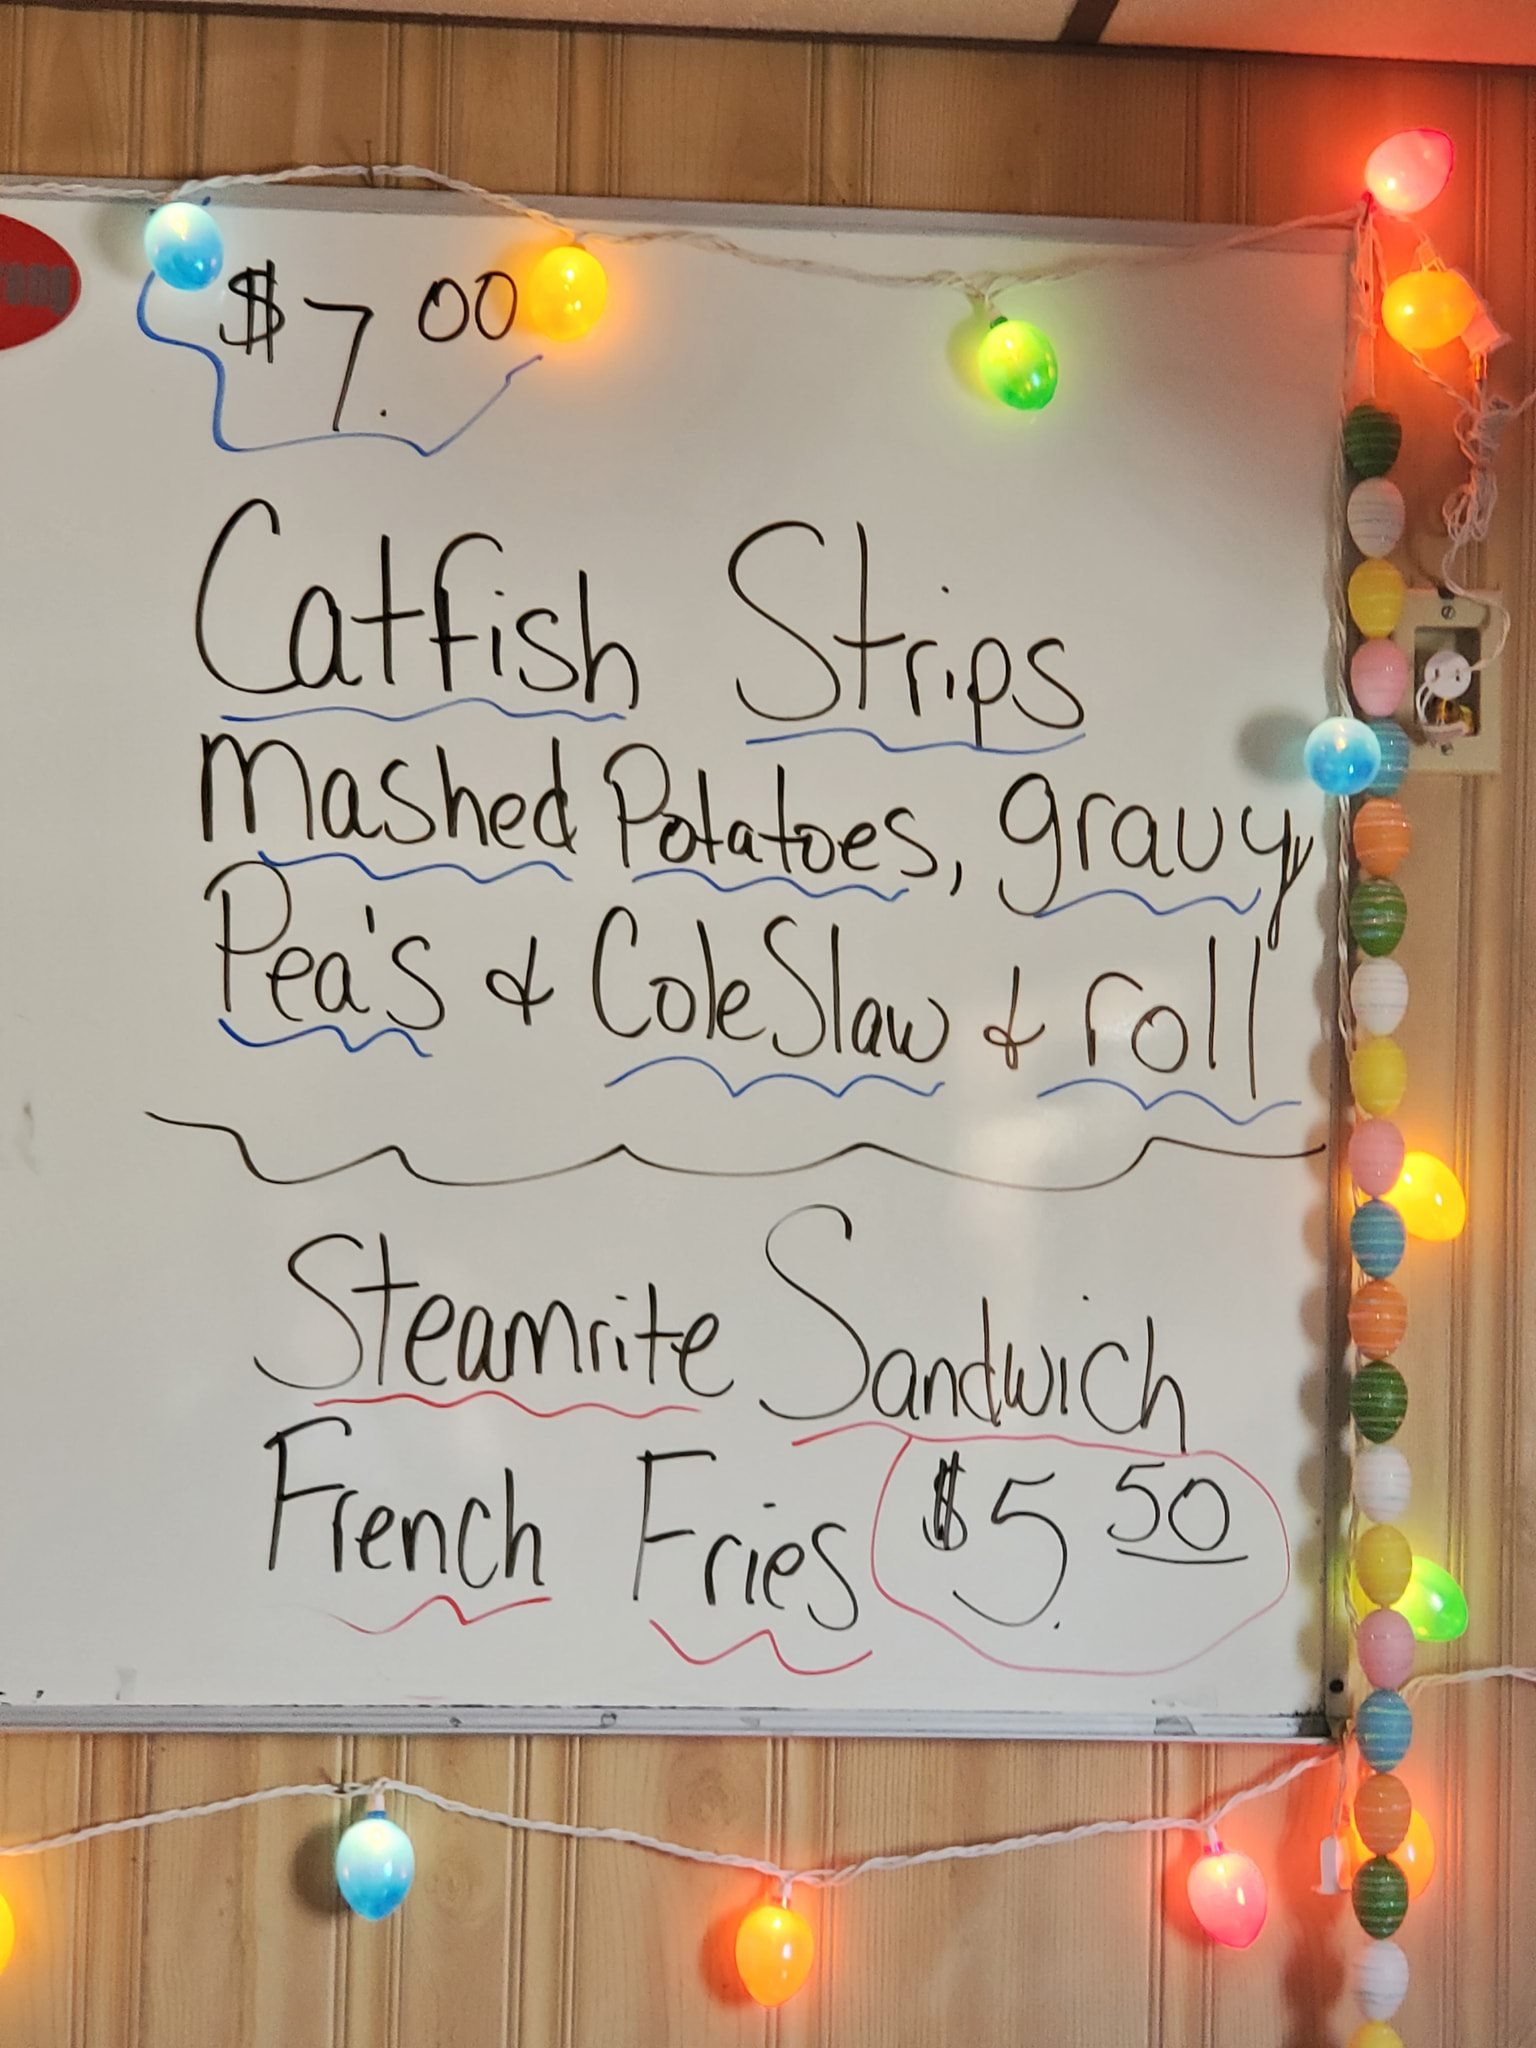 $7.00
Catfish Strips
Mashed Potatoes, gravy,
Pea's & ColeSlaw & roll
Steamrite Sandwich
French Fries $5.50